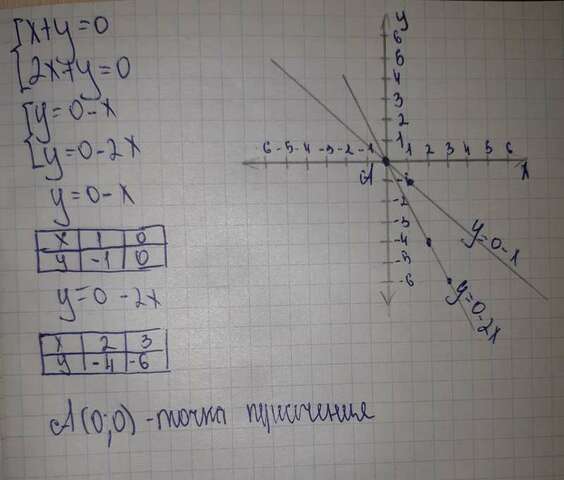 x+y=0
2x+y=0
y=0-x
y=0-2x
y=0-x
x 1 0
y -1 0
y=0-2x
x 2 3
y -4 -6
A(0;0) - точка пресечения
y
6
5
4
3
2
1
6 -5 -4 -3 -2 -1 1 2 3 4 5 6
x
A
-2
-3
-4
-5
-6
y=0-x
y=0-2x